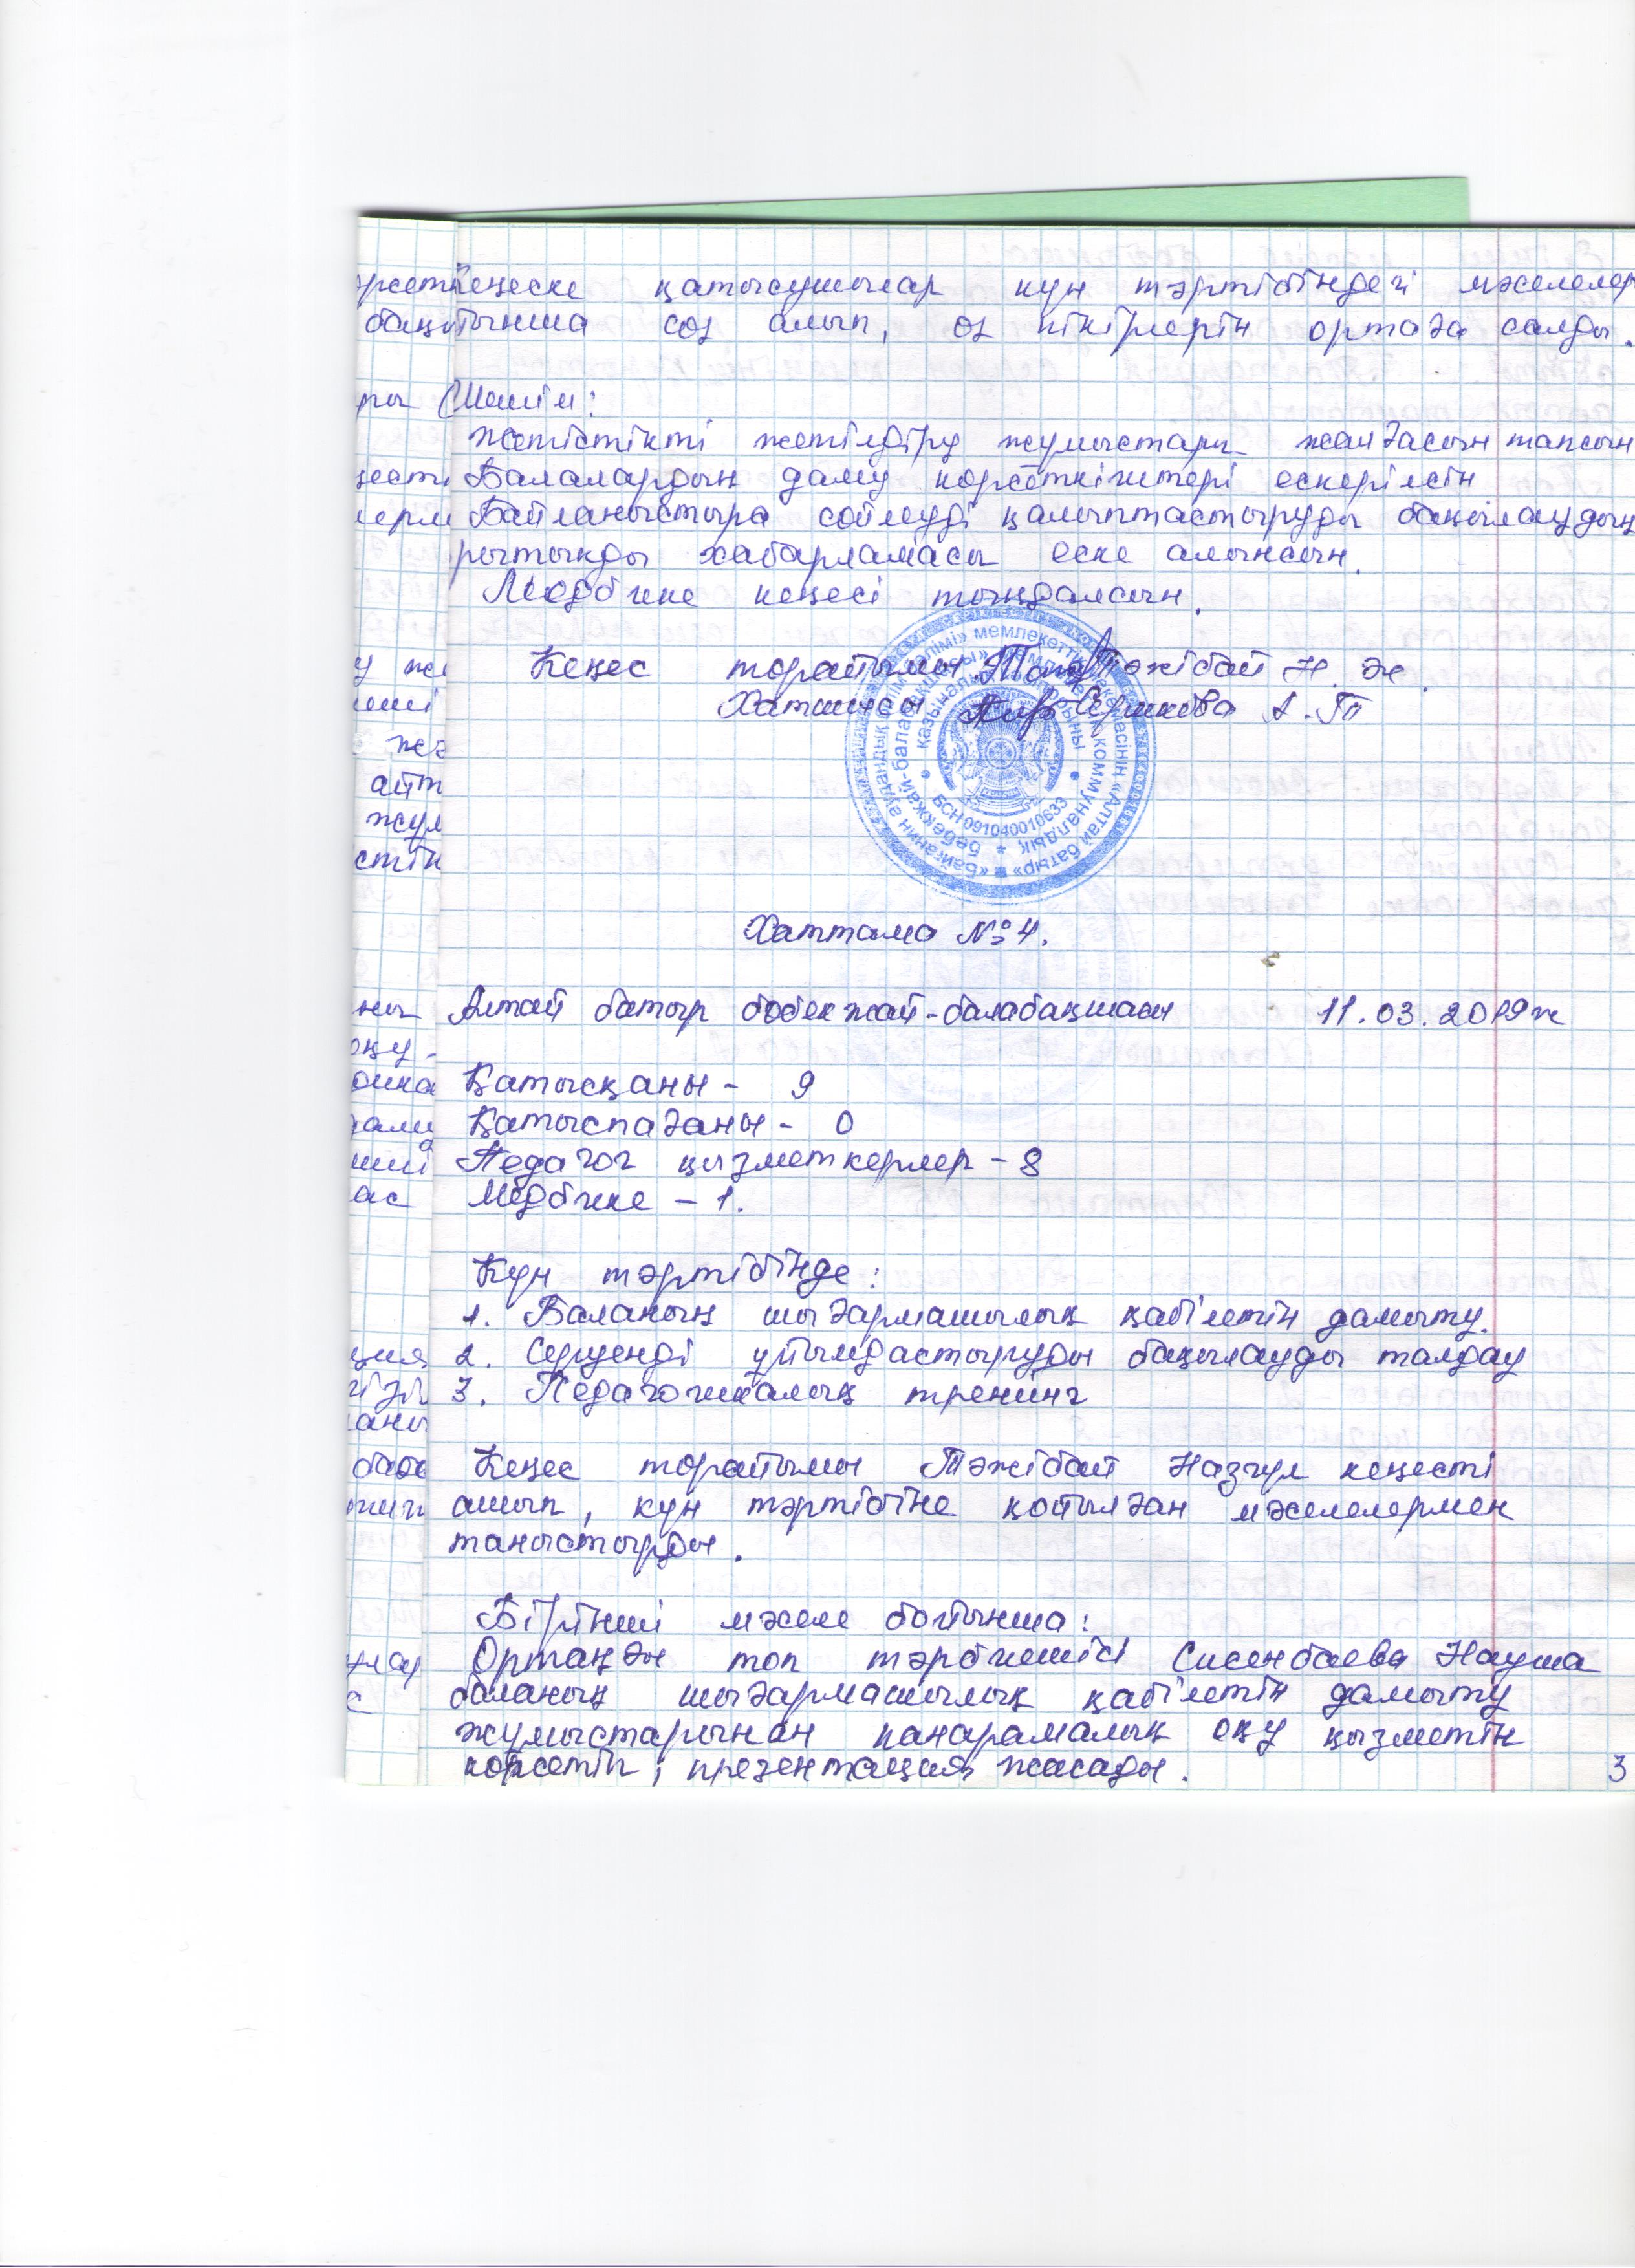 кеңеске қатысушылар күн тәртібіндегі мәселелер
бойынша сөз алып, өз пікірлерін ортаға салды.
Шешім:
Жетістікті жетілдіру жұмыстары жалғасын тапсын
Балалардың даму көрсеткіштері ескерілсін
Байланыстыра сөйлеуді қалыптастыруды бақылаудың
қорытынды хабарламасы еске алынсын.
Медбике кеңесі тыңдалсын.
Кеңес төрайымы Тәжібай Н. Ж.
Хатшысы Серикова А. Т
БСН 091040010633
Хаттама №4.
Алтай батыр бөбекжай-балабақшасы 11.03.2019ж
Қатысқаны - 9
Қатыспағаны - 0
Педагог қызметкерлер - 8
Медбике - 1.
Күн тәртібінде:
1. Баланың шығармашылық қабілетін дамыту.
2. Серуенді ұйымдастыруды бақылауды талдау
3. Педагогикалық тренинг
Кеңес төрайымы Тәжібай Назгул кеңесті
ашып, күн тәртібіне қойылған мәселелермен
таныстырды.
Бірінші мәселе бойынша:
Ортаңғы топ тәрбиешісі Сисенбаева Науша
баланың шығармашылық қабілетін дамыту
жұмыстарынан панарамалық оқу қызметін
көрсетіп, презентация жасады.
3